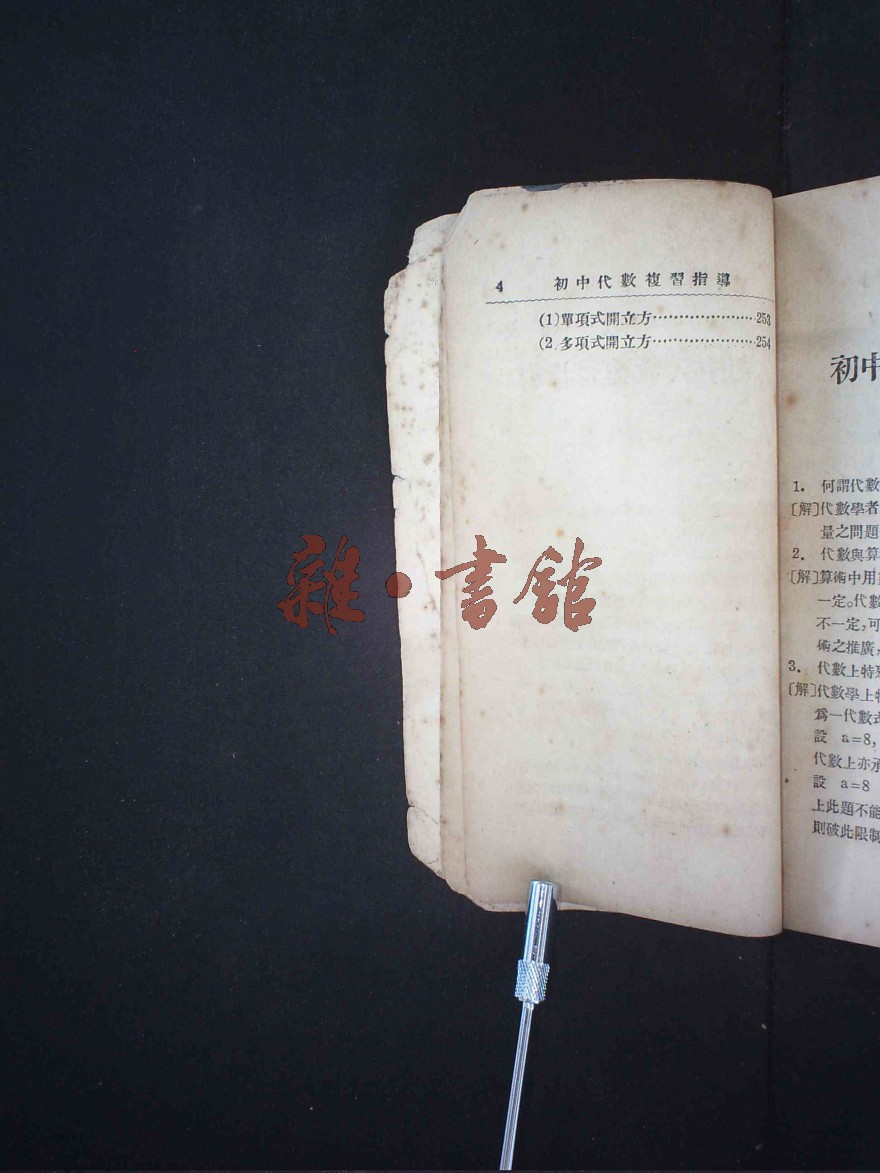 4 初中代數複習指導
(1)單項式開立方…………………253
(2.多項式開立方…………………254
初中
1. 何謂代數
〔解〕代數學者
量之問題
2. 代數與算
〔解〕算術中用
一定。代數
不一定,可
術之推廣,
3. 代數上特
〔解〕代數學上
爲一代數式
設 a=8,
代數上亦承
設 a=8
上此題不能
則破此限制
雜·書舘